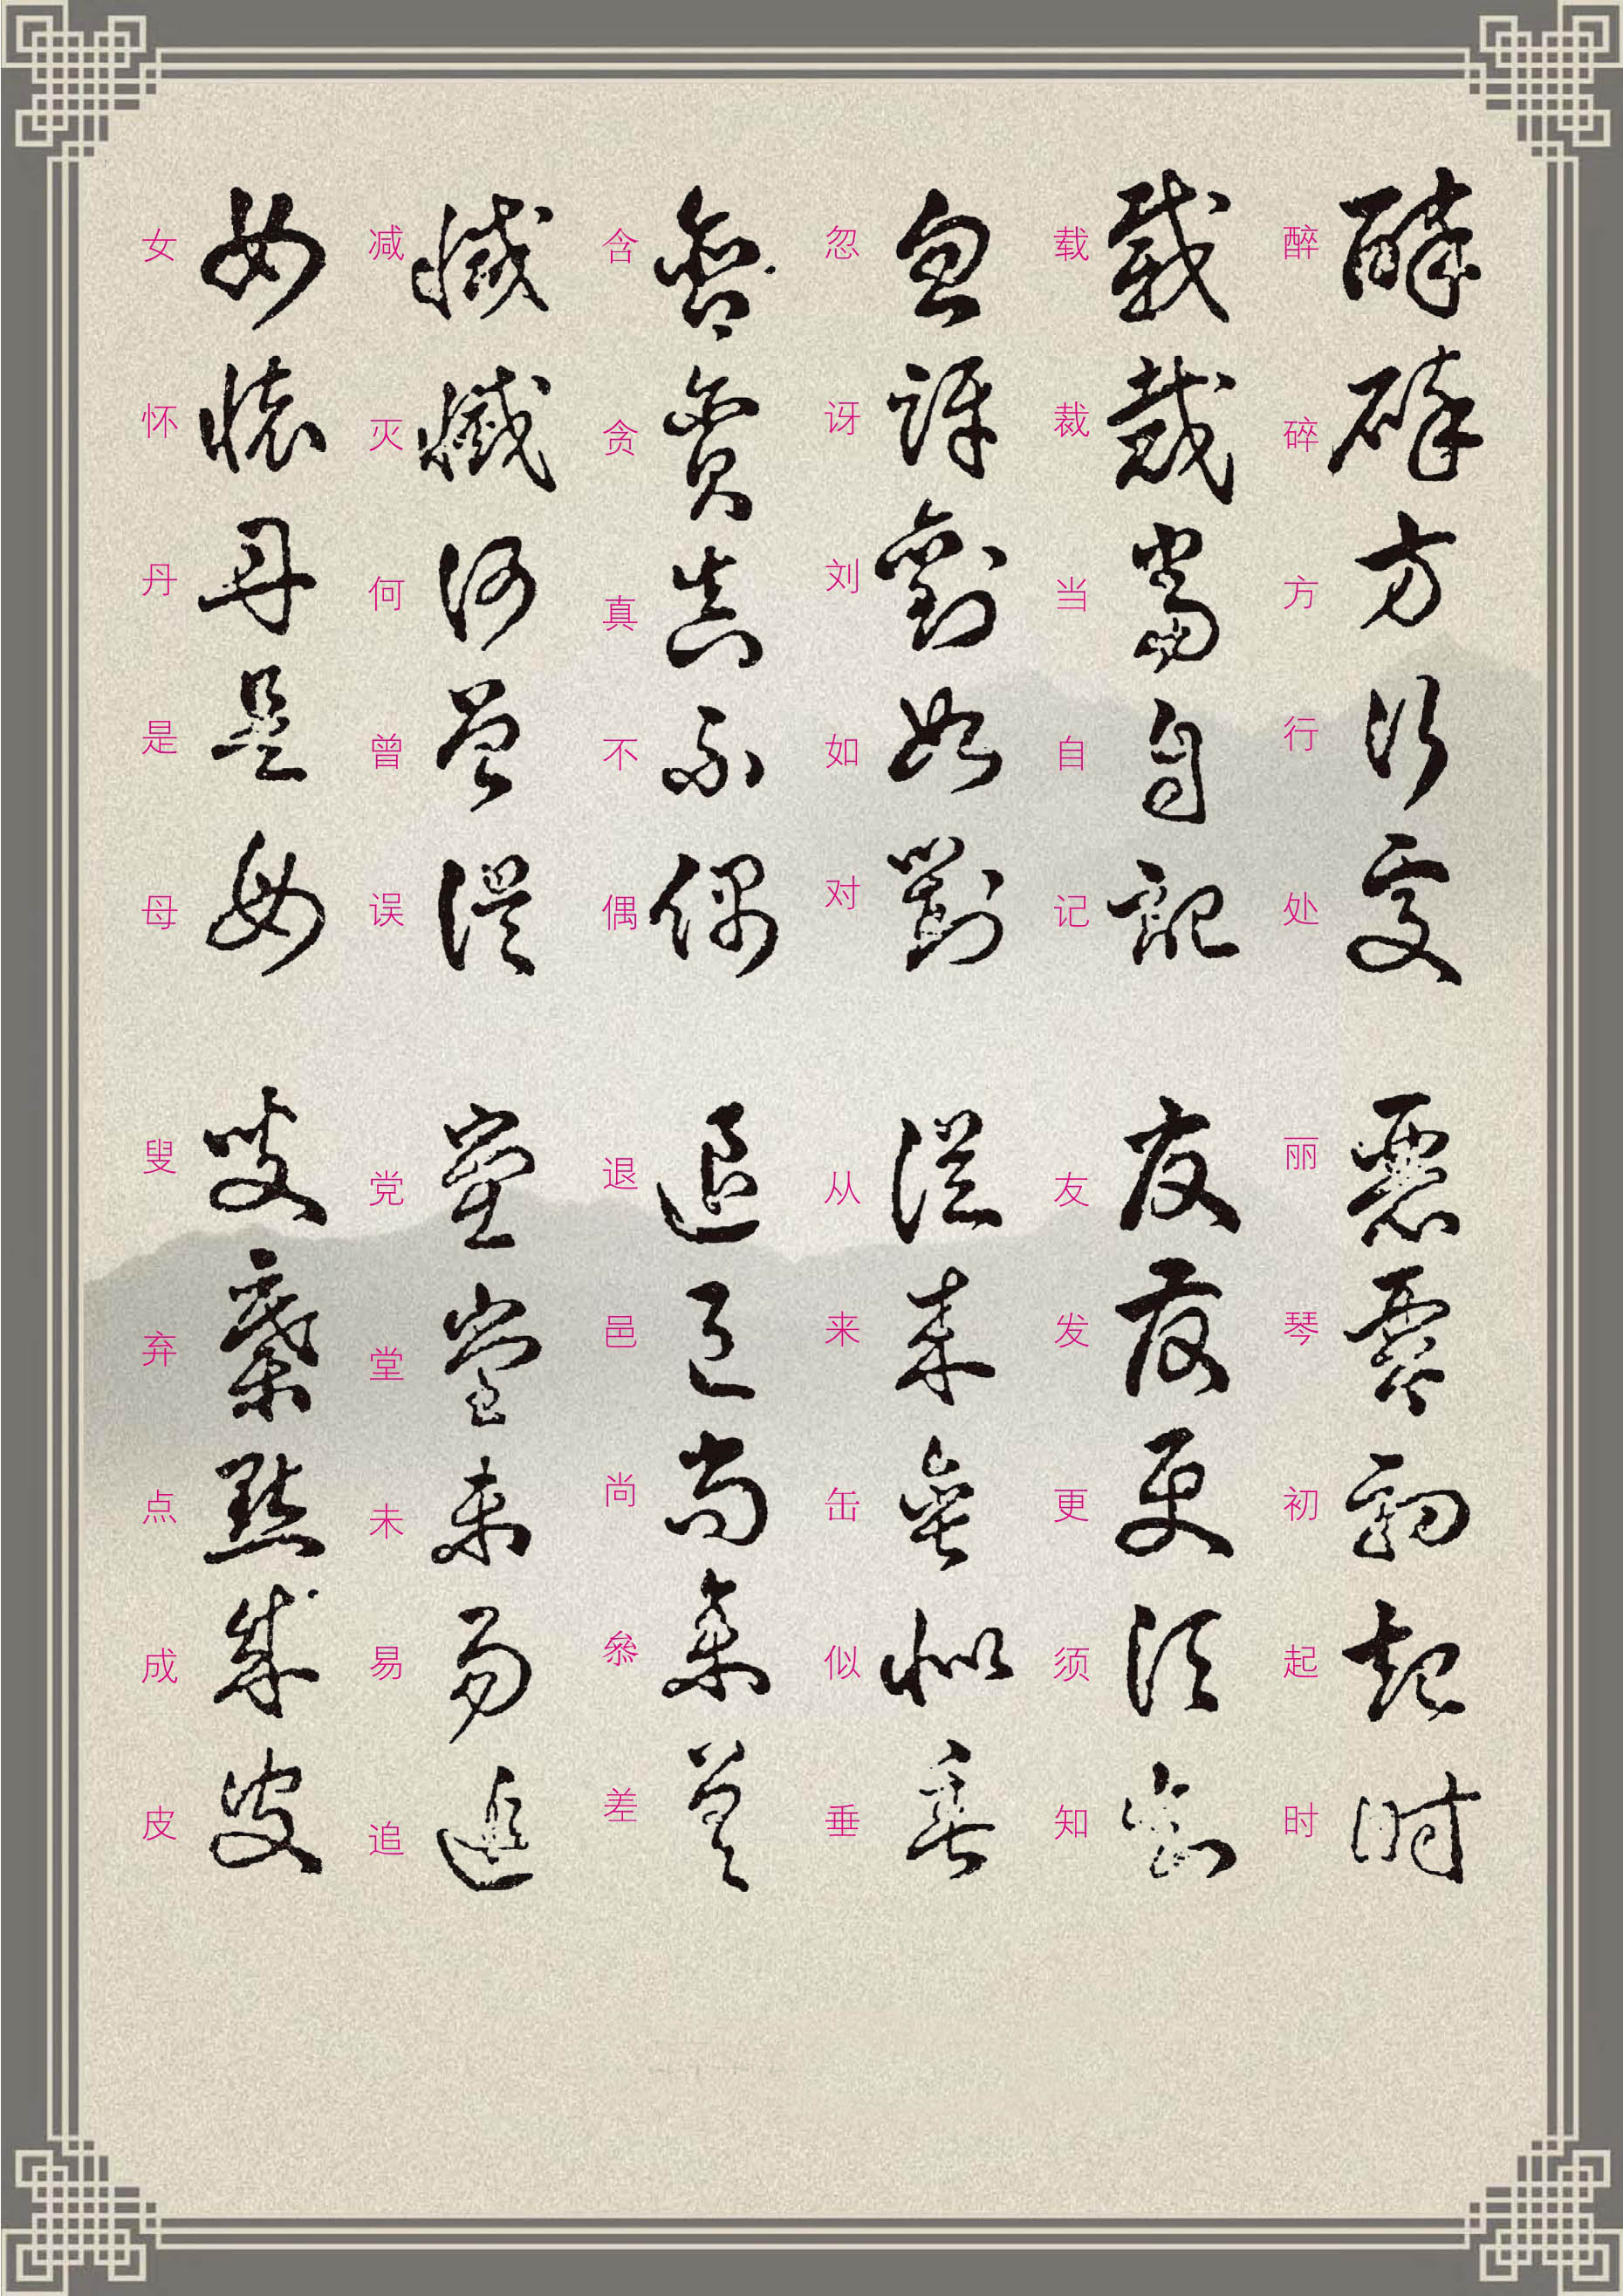 醉碎方行处
载裁当自记
忽讶刘如对
含贪真不偶
减灭何曾误
女怀丹是母
丽琴初起时
友发更须知
从来缶似垂
退邑尚叅差
党堂未易追
叟弃点成皮